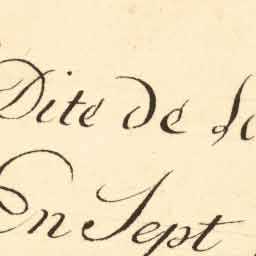 Dite de
En Sept